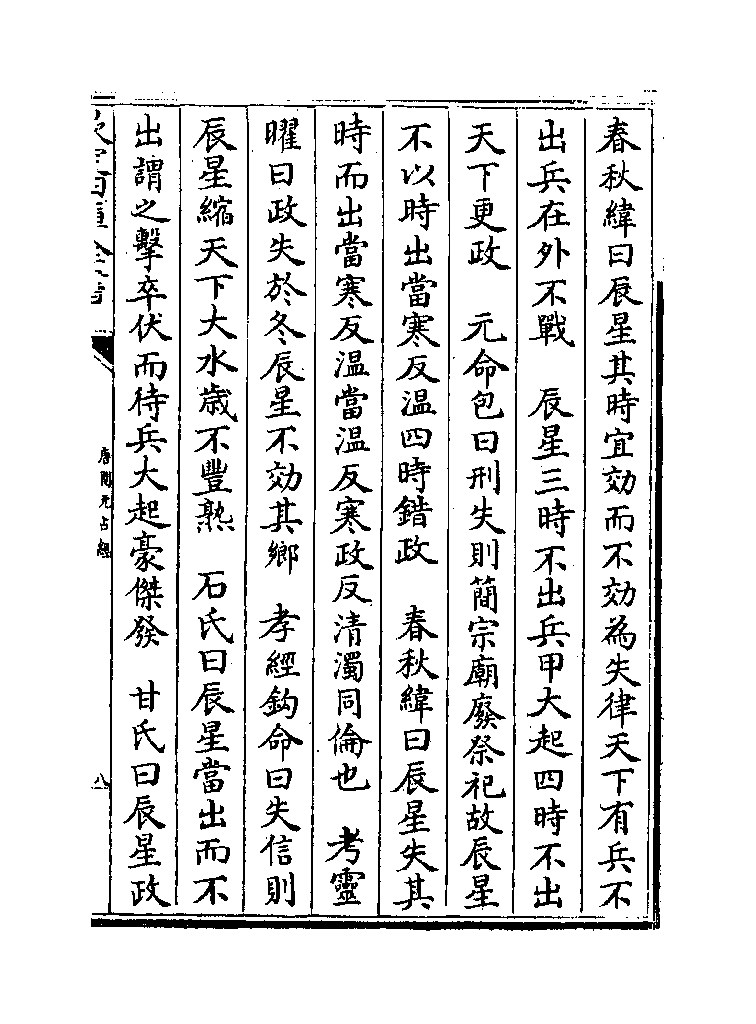 春秋緯曰辰星其時宜効而不効為失律天下有兵不
出兵在外不戰　辰星三時不出兵甲大起四時不出
天下更政　元命包曰刑失則簡宗廟廢祭祀故辰星
不以時出當寒反温四時錯政　春秋緯曰辰星失其
時而出當寒反温當温反寒政反清濁同倫也　考靈
曜曰政失於冬辰星不効其鄉　孝經鈎命曰失信則
辰星縮天下大水歳不豐熟　石氏曰辰星當出而不
出謂之擊卒伏而待兵大起豪傑發　甘氏曰辰星政
唐開元占經
八